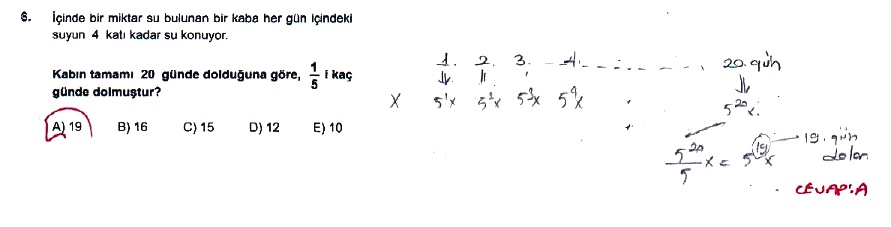 6. İçinde bir miktar su bulunan bir kaba her gün içindeki
suyun 4 katı kadar su konuyor.
Kabın tamamı 20 günde dolduğuna göre, 1/5 i kaç
günde dolmuştur?
A) 19 B) 16 C) 15 D) 12 E) 10
1. 2. 3. 4. 20. gün
x 5¹x 5²x 5³x 5⁴x 5²⁰x.
5²⁰/5 x = 5¹⁹x 19. gün
dolar.
CEVAP:A